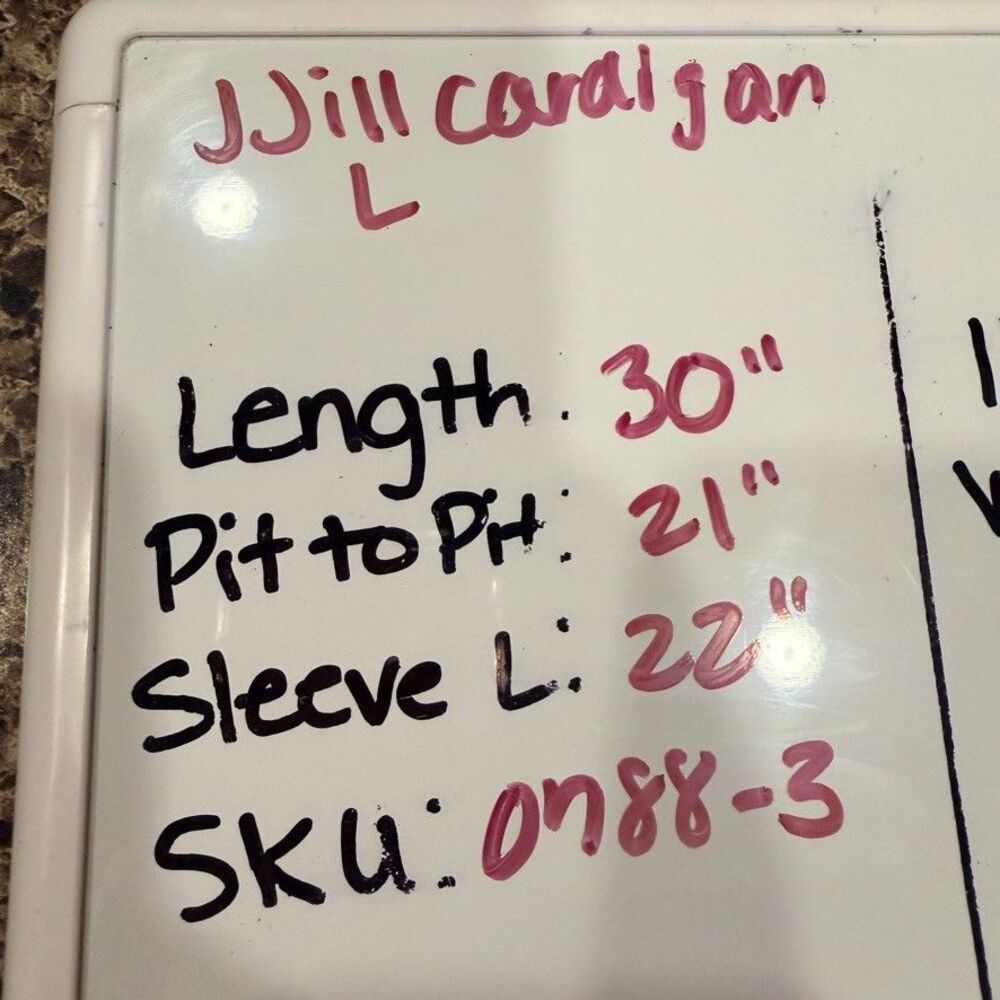 JJill cardigan
L
Length: 30"
Pit to Pit: 21"
Sleeve L: 22"
SKU: 0n88-3